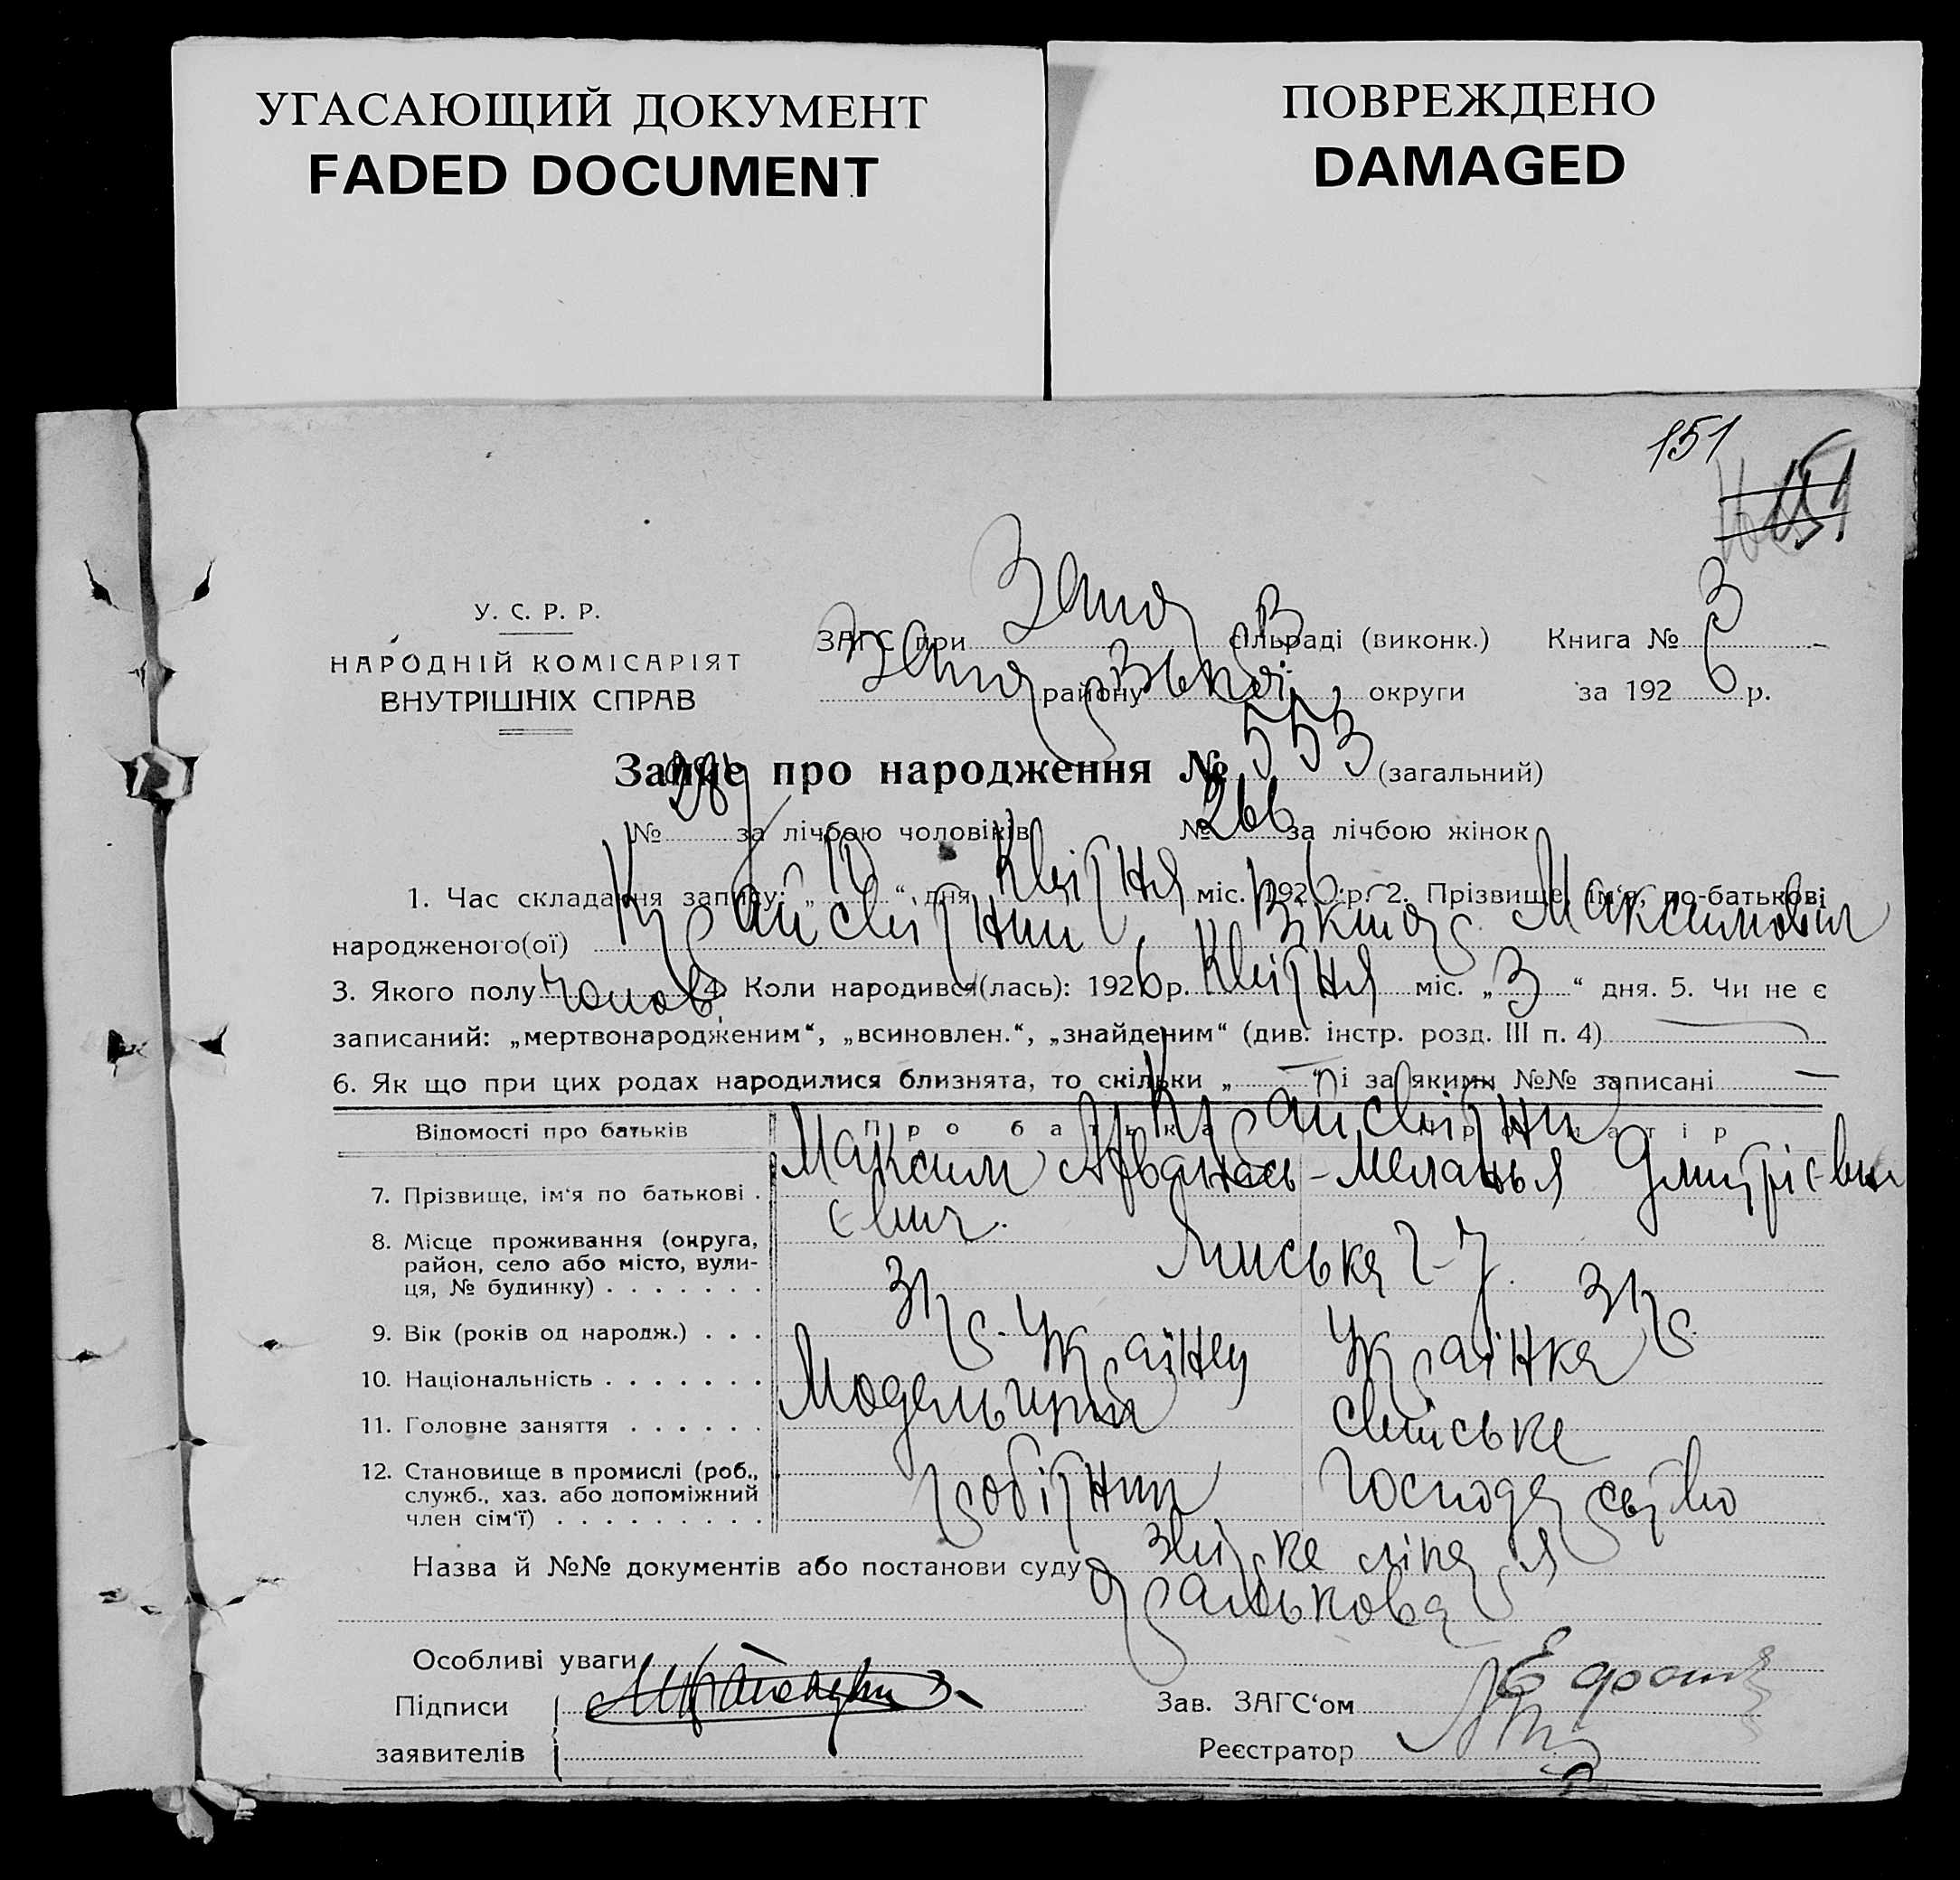 УГАСАЮЩИЙ ДОКУМЕНТ
FADED DOCUMENT
ПОВРЕЖДЕНО
DAMAGED
151
У. С. Р. Р.
НАРОДНІЙ КОМІСАРІЯТ
ВНУТРІШНІХ СПРАВ
ЗАГС при Запор сільраді (виконк.) Книга № 3
Запор району округи за 1926 р.
Запис про народження № 553 (загальний)
№ 287 за лічбою чоловіків № 266 за лічбою жінок
1. Час складання запису: „ “ дня Квітня міс. 1926 р. 2. Прізвище, ім‘я, по-батькові
народженого(ої) Віктор Максимович
3. Якого полу чолов. 4. Коли народився(лась): 1926 р. Квітня міс. „3“ дня. 5. Чи не є
записаний: „мертвонародженим“, „всиновлен.“, „знайденим“ (див. інстр. розд. III п. 4)
6. Як що при цих родах народилися близнята, то скільки „ — “ і за якими №№ записані —
Відомості про батьків Про батька Про матір
7. Прізвище, ім‘я по батькові . Максим Афванась- Меланья Дмитрієвна
євич.
8. Місце проживання (округа,
район, село або місто, вули-
ця, № будинку) . . . . . . .
9. Вік (років од народж.) . . . 31 р. 31 р.
10. Національність . . . . . . . Українец Українка
11. Головне заняття . . . . . . Модельщик сельське
12. Становище в промислі (роб.,
служб., хаз. або допоміжний
член сім‘ї) . . . . . . . . . робітник господарство
Назва й №№ документів або постанови суду
Особливі уваги
Підписи
заявителів
Зав. ЗАГС‘ом
Реєстратор